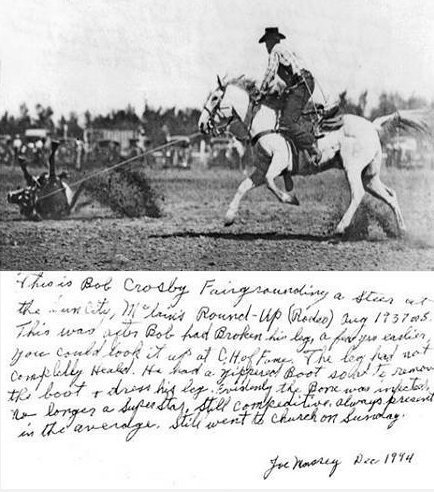 This is Bob Crosby Fairgrounding a Steer at
the Sun City, Round-Up (Rodeo) Aug 1937
This was after Bob had Broken his leg a few yrs earlier,
you could look it up at C. H of Fame. The leg had not
Healed. He had a zippered Boot so to remove
the boot & dress his leg. Evidently the Bone was infected,
no longer a Super Star, Still Competitive, always present
in the average. Still went to church on Sunday.
Joe Dec 1994